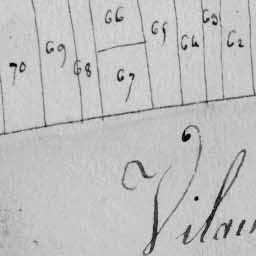 70 69 68 66 65 64 63 62
67